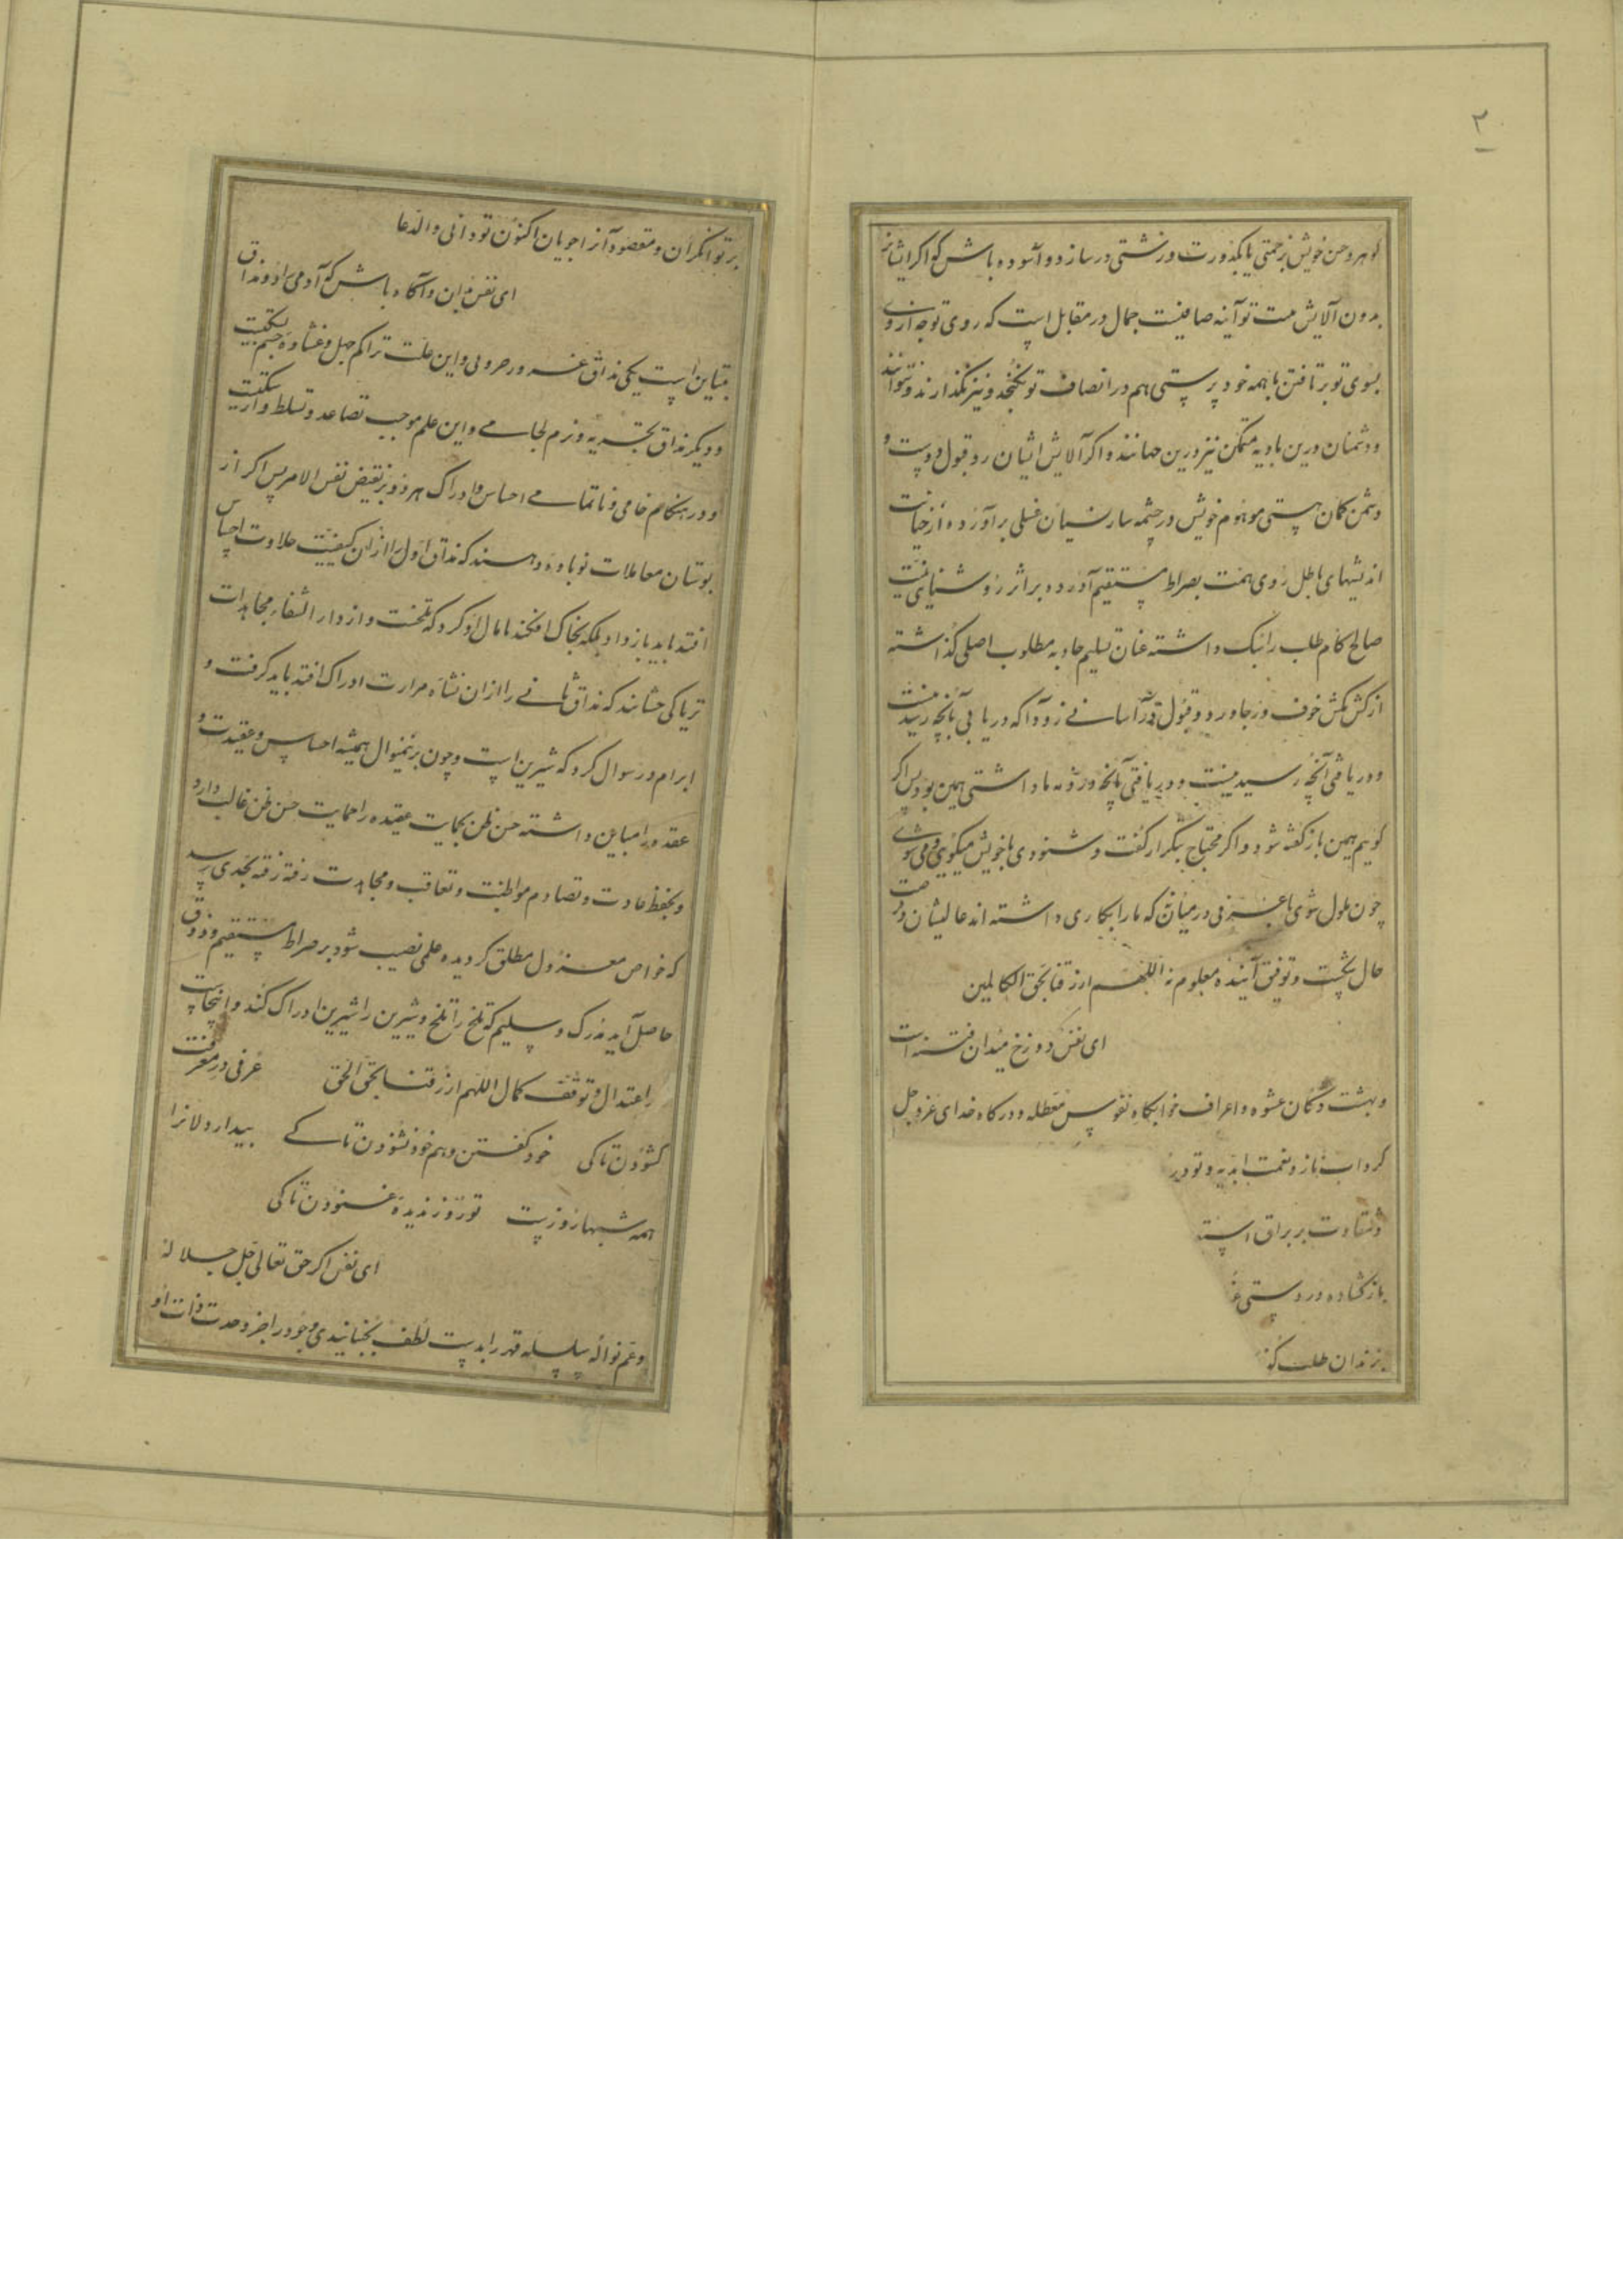 ۲
گوهر و حسن خویش زحمتی یا بکدورت و زشتی در سازد و آسوده باش که اگر ایشانز
بدون آلایش هست تو آینه صافیست جمال در مقابل است که روی توجه از روی
بسوی تو برتافتن با همه خود پرستی هم در انصاف تو نگنجد و نیز نگذارند و نتوانند
و دشمنان درین بادیه متمکن نیز درین جهانند و اگر آلایش ایشان رد و قبول دوست و
دشمن گمان هستی موهوم خویش در چشمه سار نسیان غسلی برآورده از خباثت
اندیشهای باطل روی همت بصراط مستقیم آورده بر اثر روشنایی نیت
صالح کام طلب را نیک داشته عنان تسلیم جاذبه مطلوب اصلی گذاشته
از کش مکش خوف و رجا و رد و قبول قدر آسانی زود آ که دریابی آنچه رسیدنیست
و دریافتی آنچه رسیدنیست و دریافتی آنچه ورزنه ما داشتی همین بود پس اگر
گویم همین باز گفته شود و اگر محتاج بتکرار گفت و شنودی با خویش میگویی و می شنوی
چون ملول شوی با عرفی در میان نه که ما را بکاری داشته اند عالیشان
حال چیست و توفیق آینده معلوم نه اللهم ارزقنا بحق الکاملین
ای نفس دوزخ میدان فتنه است
و بهشت دکان عشوه و اعراف خوابگاه نفوس معطله و درگاه خدای عز و جل
گرداب ناز و نعمت ابدیه و تو در
و شقاوت بر براق
باز گشاده در دستی
بزندان طلب کن
بر تو انگران و مقصود آزاجویان اکنون تو دانی و الدعا
ای نفس بدان و آگاه باش که آدمی را دو مذاق
متباین است یکی مذاق غرور حرونی و این علت تراکم جهل و غشاوه چشم بکیت
و دیگر مذاق تجربه و نرم لجامی و این علم موجب تصاعد و تسلط و اریکیت
و در هنگام خامی و ناتمامی احساس و ادراک هر دو بر نقیض نفس الامر پس اگر از
بوستان معاملات نوباوه دهند که مذاق اول را ازان کیفیت حلاوت احساس
افتد باید باز داد بلکه بخاک افکند تا مال او کرد که تلخست و از دار الشفاء مجاهدات
تریاکی چشانند که مذاق ثانی را ازان نشاه مرارت ادراک افتد باید گرفت و
ابرام در سوال کرد که شیرین است و چون برینمنوال همیشه احساس و عقیدت و
عقده را مباین داشته حسن ظن بحمایت عقیده را حمایت حسن ظن غالب دارد
و بحفظ عادت و تصادم مواظبت و تعاقب و مجاهدت رفته رفته بجدی رسد
که خواص معزول مطلق گردیده علمی نصیب شود بر صراط مستقیم و ذوق
حاصل آید مدرک و سلیم که تلخ را تلخ و شیرین را شیرین ادراک کند و اینجاست
را اعتدال و توقف کمال اللهم ارزقنا بحق الحق عرفی در معرفت
گشودن تا کی خود گفتن و هم خود شنودن تا کی بیدار دلانرا
همه شبها روزیست تو روز ندیده غنودن تا کی
ای نفس اگر حق تعالی جل جلاله
و عم نواله سلسله قهر را بدست لطف بجنبانیدی وجود را جز وحدت ذات او